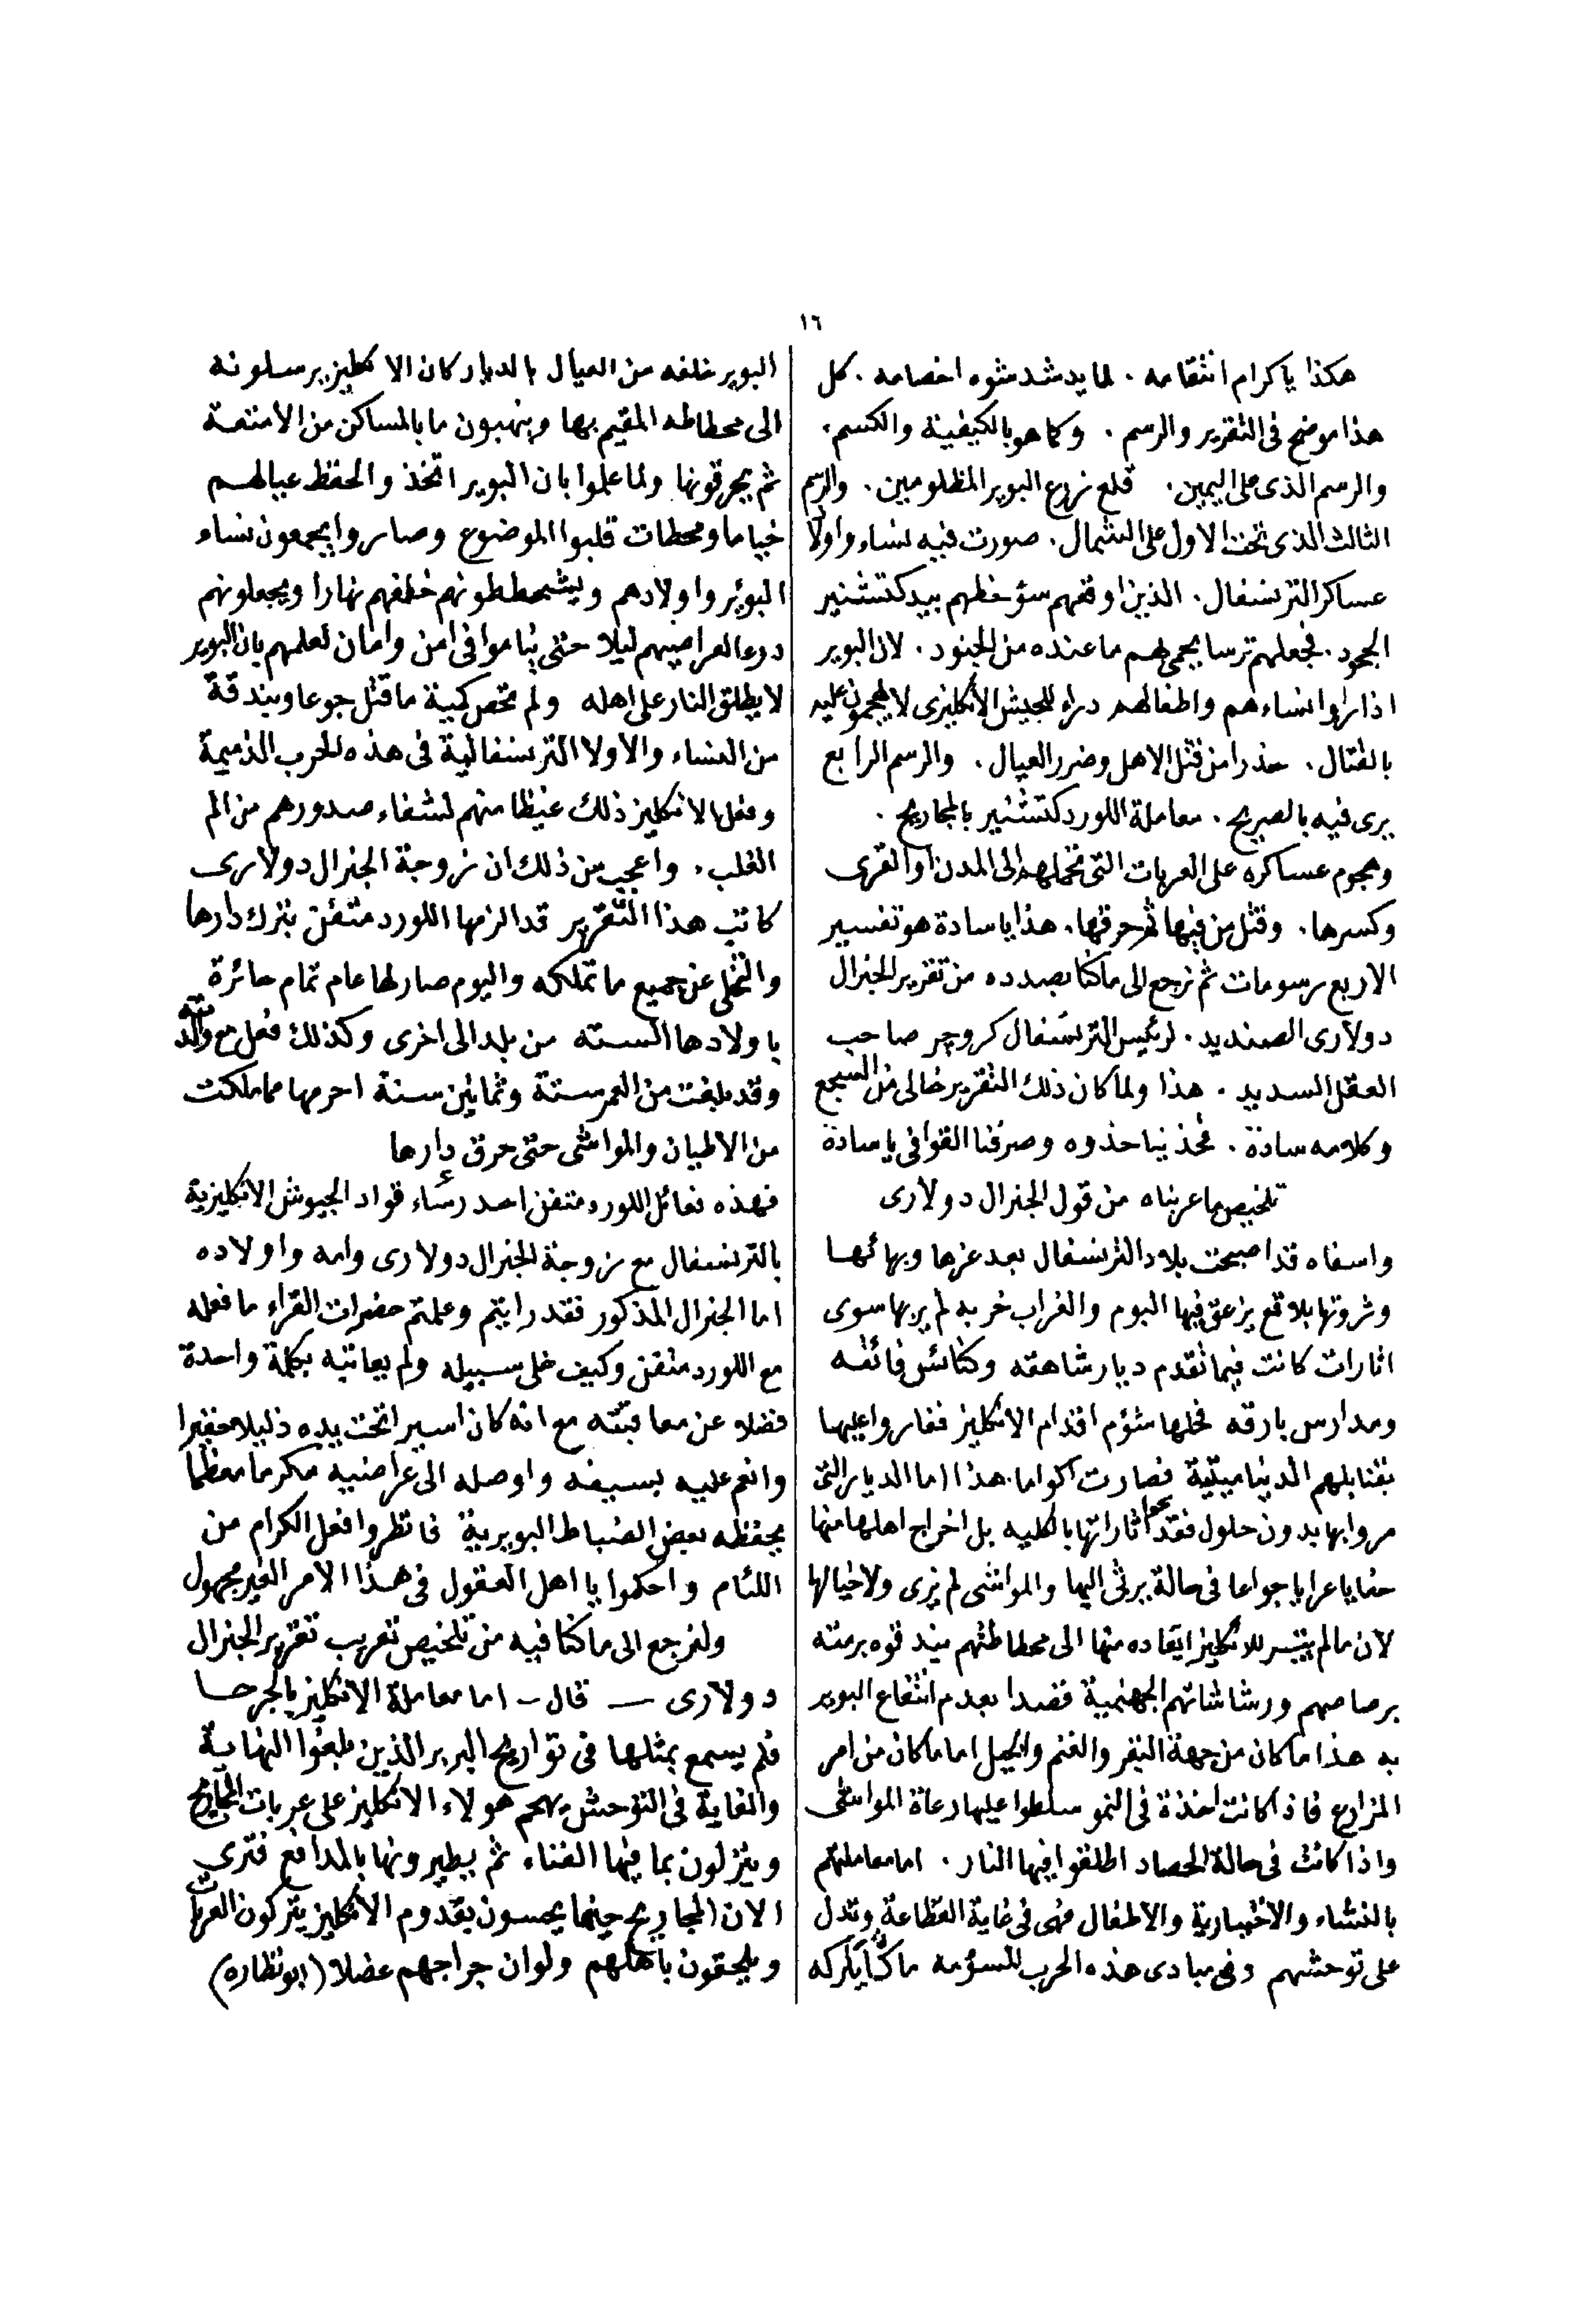 ١٦
هكذا ياكرام انتقامه . لما يدشدشوه اخصامه . كل
هذا موضح فى التقرير والرسم . وكما هو بالكيفية والكسم .
والرسم الذى على اليمين . قلع زرع البوير المظلومين . والرسم
الثالث الذى تحت الاول على الشمال . صورت فيه نساء واولاد
عساكر الترنسفال . الذين اوقعهم سؤ حظهم بيد كتشنير
الجحود . فجعلهم ترسا يحمى بهم ما عنده من الجنود . لان البوير
اذا راوا نساءهم واطفالهم دراء للجيش الانكليزى لا يهجمون عليه
بالقتال . حذرا من قتل الاهل وضرر العيال . والرسم الرابع
يرى فيه بالصريح . معاملة اللورد كتشنير بالمجاريح .
وهجوم عساكره على العربات التى تحملهم الى المدن او القرى
وكسرها . وقتل من فيها ثم حرقها . هذا ياسادة هو تفسير
الاربع رسومات ثم نرجع الى ماكنا بصدده من تقرير الجنرال
دولارى الصنديد . لرئيس الترنسفال كروجر صاحب
العقل السديد . هذا ولما كان ذلك التقرير خالى من السجع
وكلامه سادة . فحذينا حذوه وصرفنا القوافى ياسادة
تلخيص ما عربناه من قول الجنرال دولارى
واسفاه قد اصبحت بلاد الترنسفال بعد عزها وبهائها
وثروتها بلاقع يزعق فيها البوم والغراب خربه لم ير بها سوى
اثارات كانت فيما تقدم ديار شاهقه وكنائس فائقه
ومدارس بارقه فحلها شؤم اقدام الانكليز فغاروا عليها
بقنابلهم الديناميتية فصارت اكواما هذا اما الديار التى
مروا بها بدون حلول فقد محوا اثاراتها بالكليه بل اخراج اهلها منها
حفايا عرايا جواعا فى حالة يرثى اليها والمواشى لم يرى ولا خيالها
لان مالم يتيسر للانكليز ايقاده منها الى محطاطتهم يبدقوه برمته
برصاصهم ورشاشاتهم الجهنمية قصدا بعدم انتفاع البوير
به هذا ما كان من جهة البقر والغنم والخيل اما ما كان من امر
المزارع فاذا كانت اخذة فى النمو سلطوا عليها رعاة المواشى
واذا كانت فى حالة الحصاد اطلقوا فيها النار . اما معاملتهم
بالنساء والاختيارية والاطفال فهى فى غاية الفظاعة وتدل
على توحشهم وفى مبادى هذه الحرب المسؤمه ما كان يتركه
البوير خلفه من العيال بالديار كان الانكليز يرسلونه
الى محطاطه المقيم بها وينهبون ما بالمساكن من الامتعة
ثم يحرقونها ولما علموا بان البوير اتخذ والحفظ عيالهم
خياما ومحطات قلبوا الموضوع وصاروا يجمعون نساء
البوير واولادهم ويشحططونهم خلفهم نهارا ويجعلونهم
درعا لعراضيهم ليلا حتى يناموا فى امن وامان لعلمهم بان البوير
لا يطلق النار على اهله ولم تحص كمية ما قتل جوعا وببندقة
من النساء والاولاد الترنسفالية فى هذه الحرب الذميمة
وفعل الانكليز ذلك غيظا منهم لشفاء صدورهم من الم
الغلب . واعجب من ذلك ان زوجة الجنرال دولارى
كاتب هذا التقرير قد الزمها اللورد متفن بترك دارها
والتخلى عن جميع ما تملكه واليوم صار لها عام تمام حائرة
باولادها السته من بلد الى اخرى وكذلك فعل مع والدته
وقد بلغت من العمر ستة وثمانين سنة احرمها مما ملكت
من الاطيان والمواشى حتى حرق دارها
فهذه فعائل اللورد متفن احد رؤساء قواد الجيوش الانكليزية
بالترنسفال مع زوجة الجنرال دولارى وامه واولاده
اما الجنرال المذكور فقد رايتم وعلمتم حضرات القراء ما فعله
مع اللورد متفن وكيف خلى سبيله ولم يعاتبه بكلمة واحدة
فضلا عن معاقبته مع انه كان اسيرا تحت يده ذليلا حقيرا
وانعم عليه بسيفه واوصله الى عراضيه مكرما معظما
بحفظه بعض الضباط البويرية فانظروا فعل الكرام من
اللئام واحكموا يا اهل العقول فى هذا الامر الغير مجهول
ولنرجع الى ماكنا فيه من تلخيص تعريب تقرير الجنرال
دولارى — قال — اما معاملة الانكليز بالجرحا
فلم يسمع بمثلها فى تواريخ البربر الذين بلغوا النهاية
والغاية فى التوحش يهجم هولاء الانكليز على عربات المجاريح
وينزلون بما فيها الفناء ثم يطيرونها بالمدافع فترى
الان المجاريح حينما يحسون بقدوم الانكليز يتركون العربات
ويلحقون باهلهم ولو ان جراحهم عضلا (ابو نظاره)